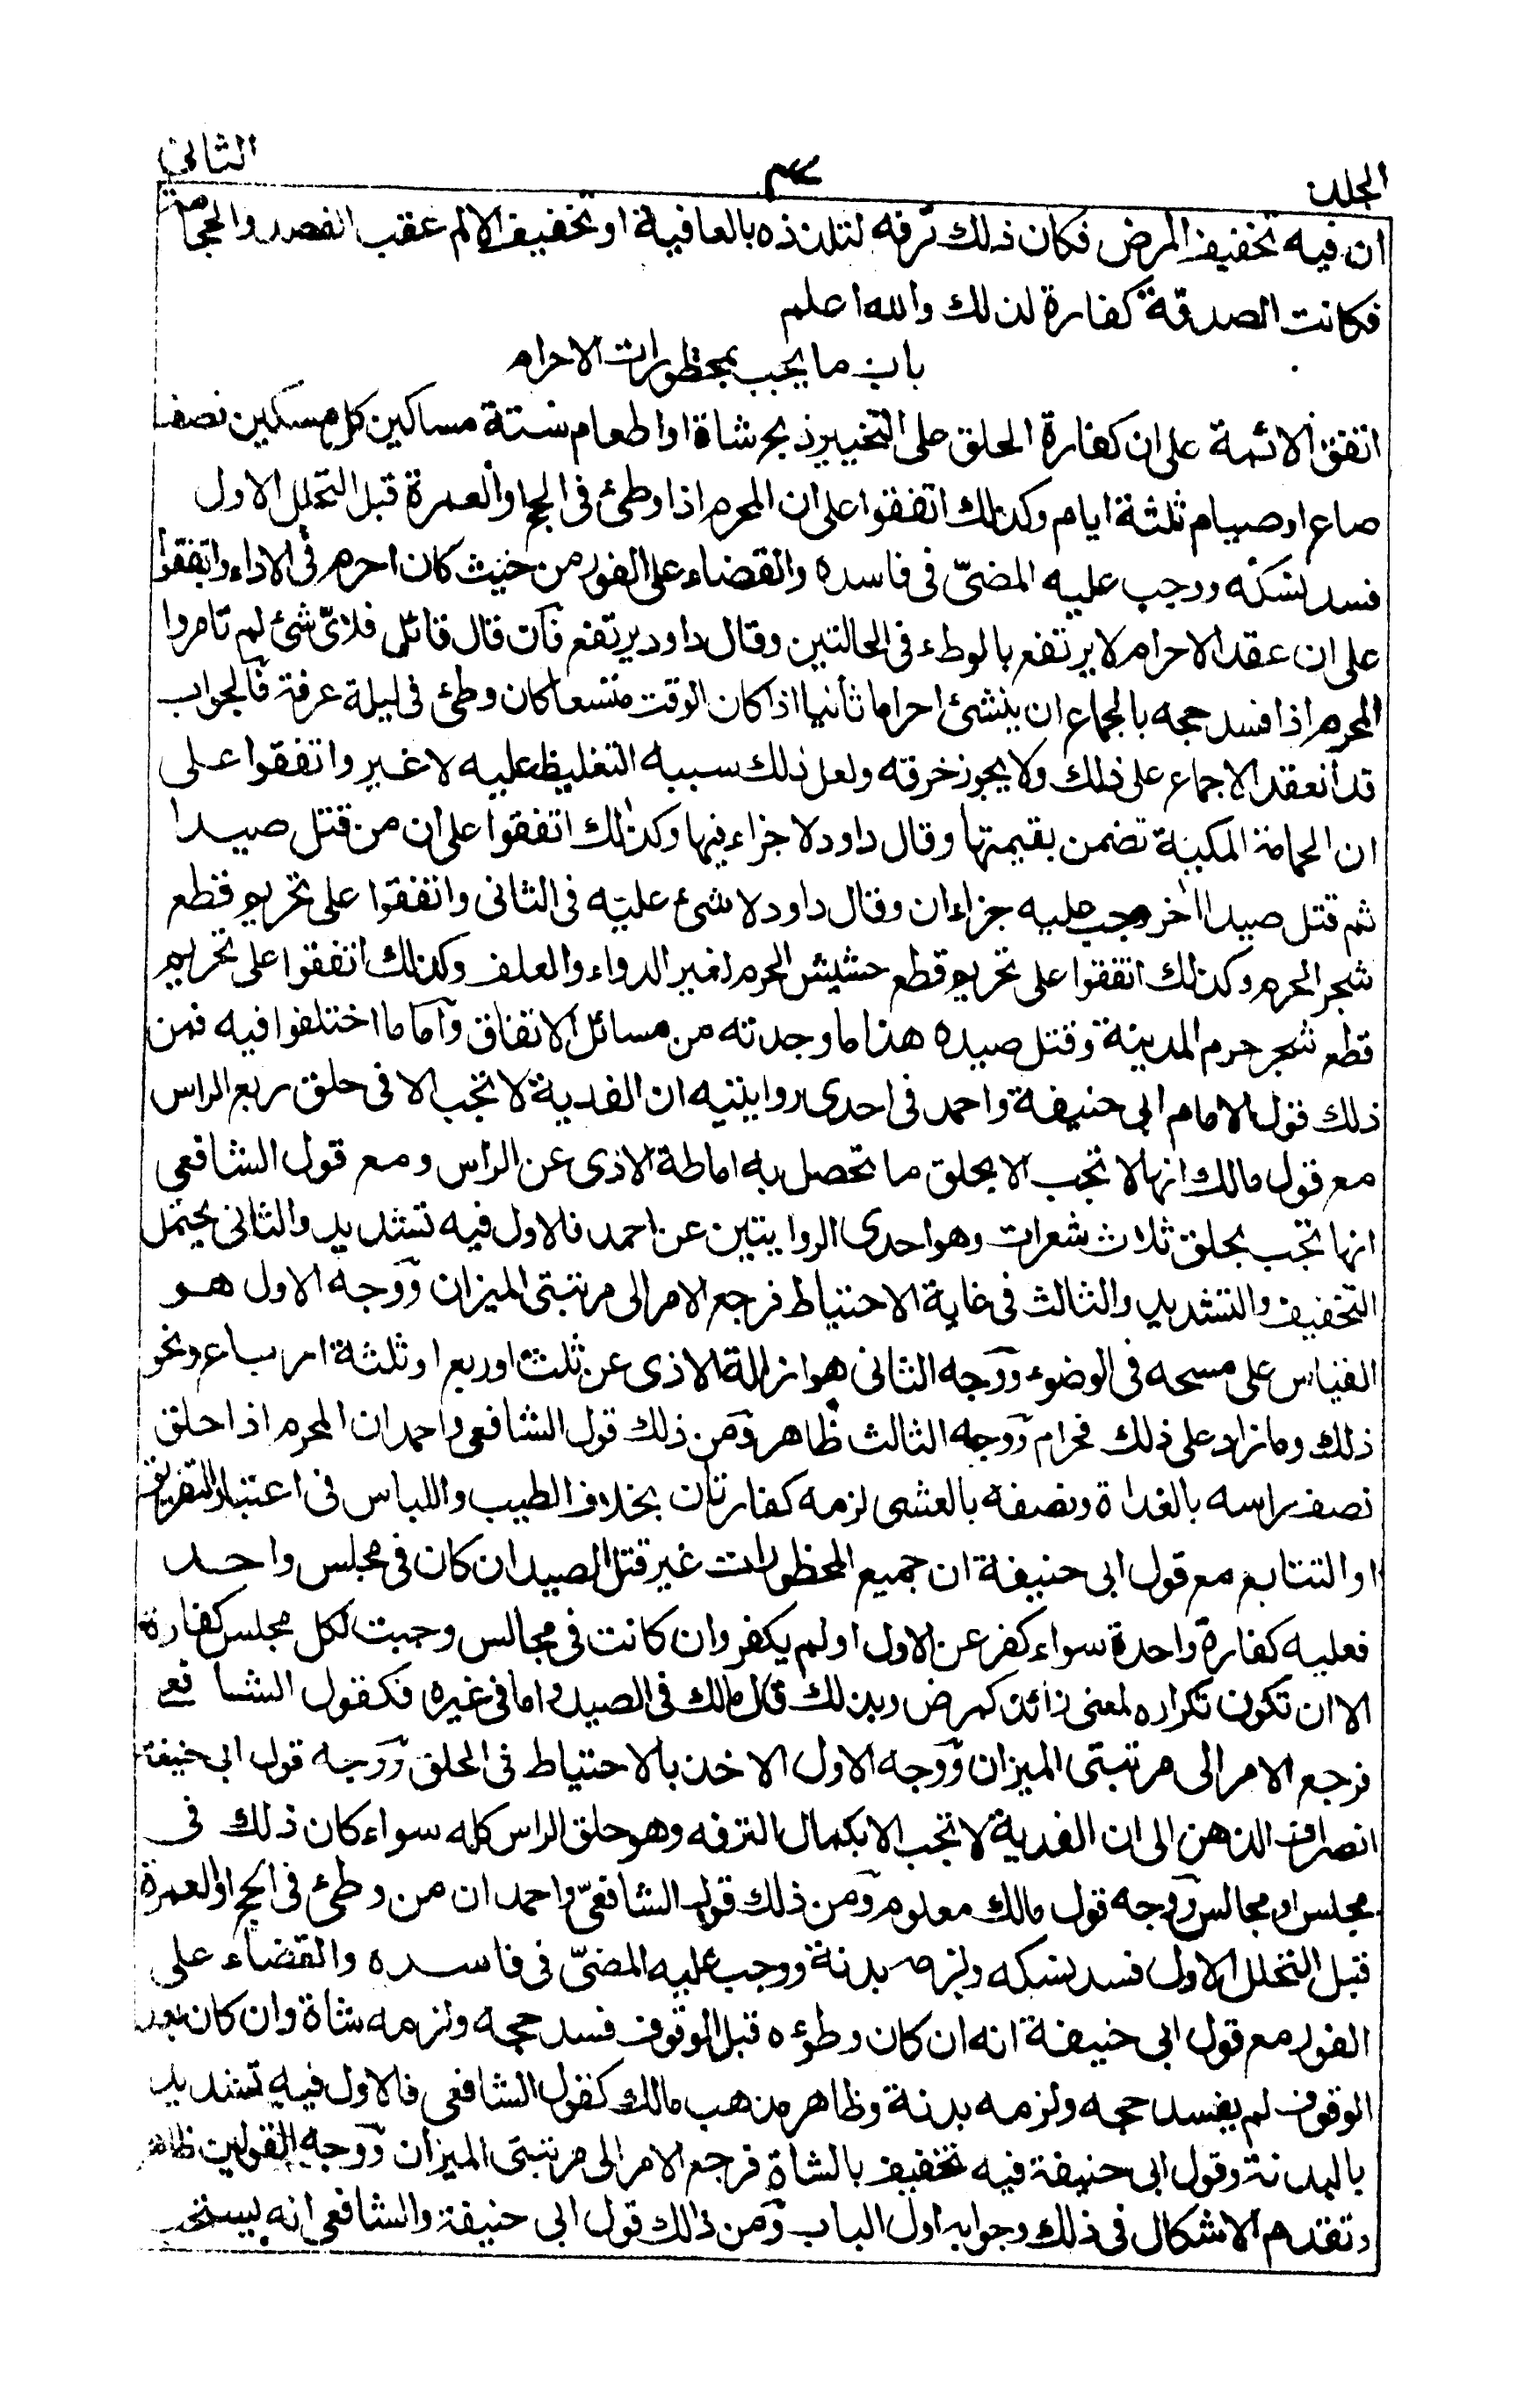 المجلد
الثاني
ان فيه تخفيف المرض فكان ذلك ترفه لتلذذه بالعافية او تخفيف الالم عقب الفصد والحجامة
فكانت الصدقة كفارة لذلك والله اعلم
باب ما يجب بمحظورات الاحرام
اتفق الائمة على ان كفارة الحلق على التخيير ذبح شاة او اطعام ستة مساكين كل مسكين نصف
صاع او صيام ثلثة ايام وكذلك اتفقوا على ان المحرم اذا وطئ فى الحج او العمرة قبل التحلل الاول
فسد نسكه ووجب عليه المضىّ فى فاسده والقضاء على الفور من حيث كان احرم فى الاداء واتفقوا
على ان عقد الاحرام لا يرتفع بالوطء فى الحالتين وقال داود يرتفع فآن قال قائل فلاىّ شئ لم تامروا
المحرم اذا فسد حجه بالجماع ان ينشئ احراما ثانيا اذا كان الوقت متسعا كان وطئ فى ليلة عرفة فآلجواب
قد انعقد الاجماع على ذلك ولا يجوز خرقه ولعل ذلك سببه التغليظ عليه لا غير واتفقوا على
ان الحمامة المكية تضمن بقيمتها وقال داود لا جزاء فيها وكذلك اتفقوا على ان من قتل صيدا
ثم قتل صيدا اخر وجب عليه جزاءان وقال داود لا شئ عليه فى الثانى واتفقوا على تحريم قطع
شجر الحرم وكذلك اتفقوا على تحريم قطع حشيش الحرم لغير الدواء والعلف وكذلك اتفقوا على تحريم
قطع شجر حرم المدينة وقتل صيده هذا ما وجدته من مسائل الاتفاق وآما ما اختلفوا فيه فمن
ذلك قول الامام ابى حنيفة واحمد فى احدى روايتيه ان الفدية لا تجب الا فى حلق ربع الراس
مع قول مالك انها لا تجب الا بحلق ما تحصل به اماطة الاذى عن الراس ومع قول الشافعى
انها تجب بحلق ثلاث شعرات وهو احدى الروايتين عن احمد فالاول فيه تشديد والثانى يحتمل
التخفيف والتشديد والثالث فى غاية الاحتياط فرجع الامر الى مرتبتى الميزان وّوجه الاول هو
القياس على مسحه فى الوضوء وّوجه الثانى هو ازالة الاذى عن ثلث او ربع او ثلثة ارباع ونحو
ذلك وما زاد على ذلك فحرام وّوجه الثالث ظاهر وّمن ذلك قول الشافعى واحمد ان المحرم اذا حلق
نصف راسه بالغداة ونصفه بالعشى لزمه كفارتان بخلاف الطيب واللباس فى اعتبار التفريق
او التتابع مع قول ابى حنيفة ان جميع المحظورات غير قتل الصيد ان كان فى مجلس واحد
فعليه كفارة واحدة سواء كفر عن الاول او لم يكفر وان كانت فى مجالس وجبت لكل مجلس كفارة
الا ان تكون تكراره لمعنى زائد كمرض وبذلك قال مالك فى الصيد واما فى غيره فكقول الشافعى
فرجع الامر الى مرتبتى الميزان وّوجه الاول الاخذ بالاحتياط فى الحلق وّوجه قول ابى حنيفة
انصراف الذهن الى ان الفدية لا تجب الا بكمال الترفه وهو حلق الراس كله سواء كان ذلك فى
مجلس او مجالس وّوجه قول مالك معلوم وّمن ذلك قول الشافعىّ واحمد ان من وطئ فى الحج او العمرة
قبل التحلل الاول فسد نسكه ولزمه بدنة ووجب عليه المضىّ فى فاسده والقضاء على
الفور مع قول ابى حنيفة انه ان كان وطؤه قبل الوقوف فسد حجه ولزمه شاة وان كان بعد
الوقوف لم يفسد حجه ولزمه بدنة وظاهر مذهب مالك كقول الشافعى فالاول فيه تشديد
بالبدنة وقول ابى حنيفة فيه تخفيف بالشاة فرجع الامر الى مرتبتى الميزان وّوجه القولين ظاهر
وتقدم الاشكال فى ذلك وجوابه اول الباب وّمن ذالك قول ابى حنيفة والشافعى انه يستحب